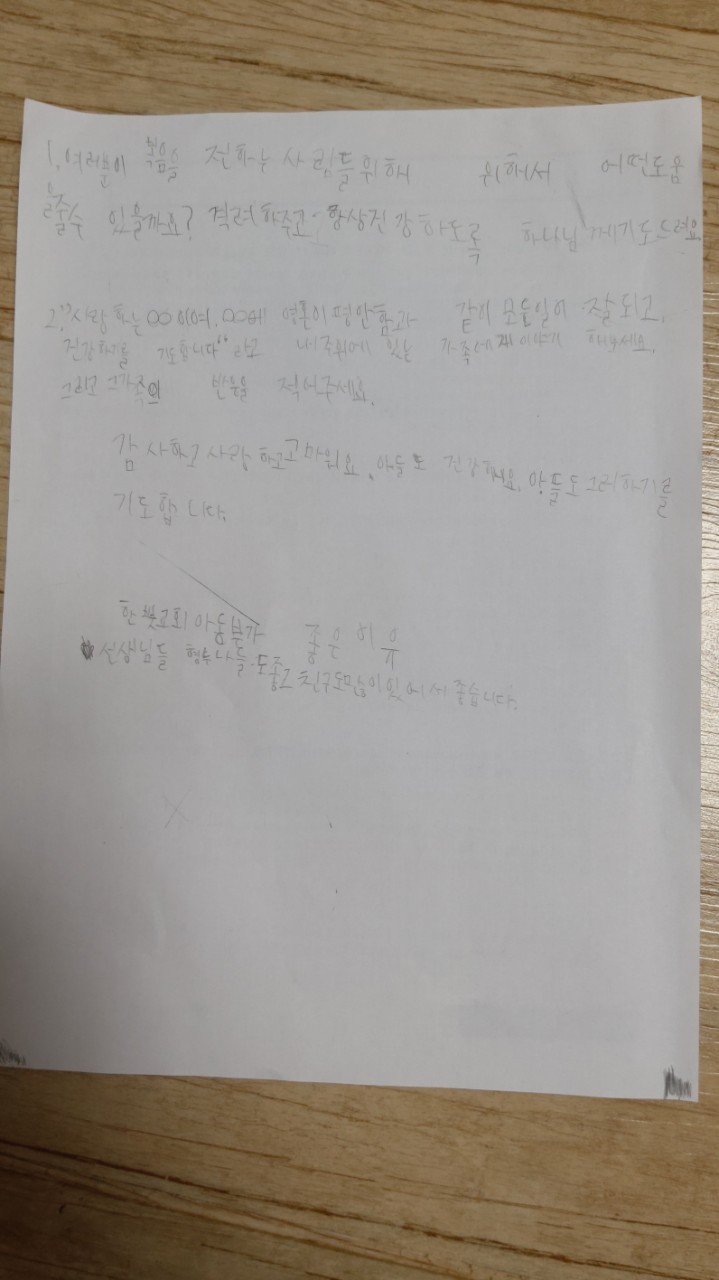 1. 여러분이 복음을 전하는 사람들위해 위해서 어떤도움
을줄수 있을까요? 격려해주고, 항상건강하도록 하나님께기도드려요
2. "사랑하는 OO이여. OO에 영혼이 평안함과 같이 모든일이 잘되고,
건강하기를 기도합니다" 라고 내주위에 있는 가족에게이야기 해보세요.
그리고 그가족의 반응을 적어주세요.
감사하고 사랑하고고마워요. 아들도 건강하세요. 아들도그러하기를
기도합니다.
한빛교회 아동부가 좋은이유
선생님들 형누나들도좋고 친구도많이있어서 좋습니다.